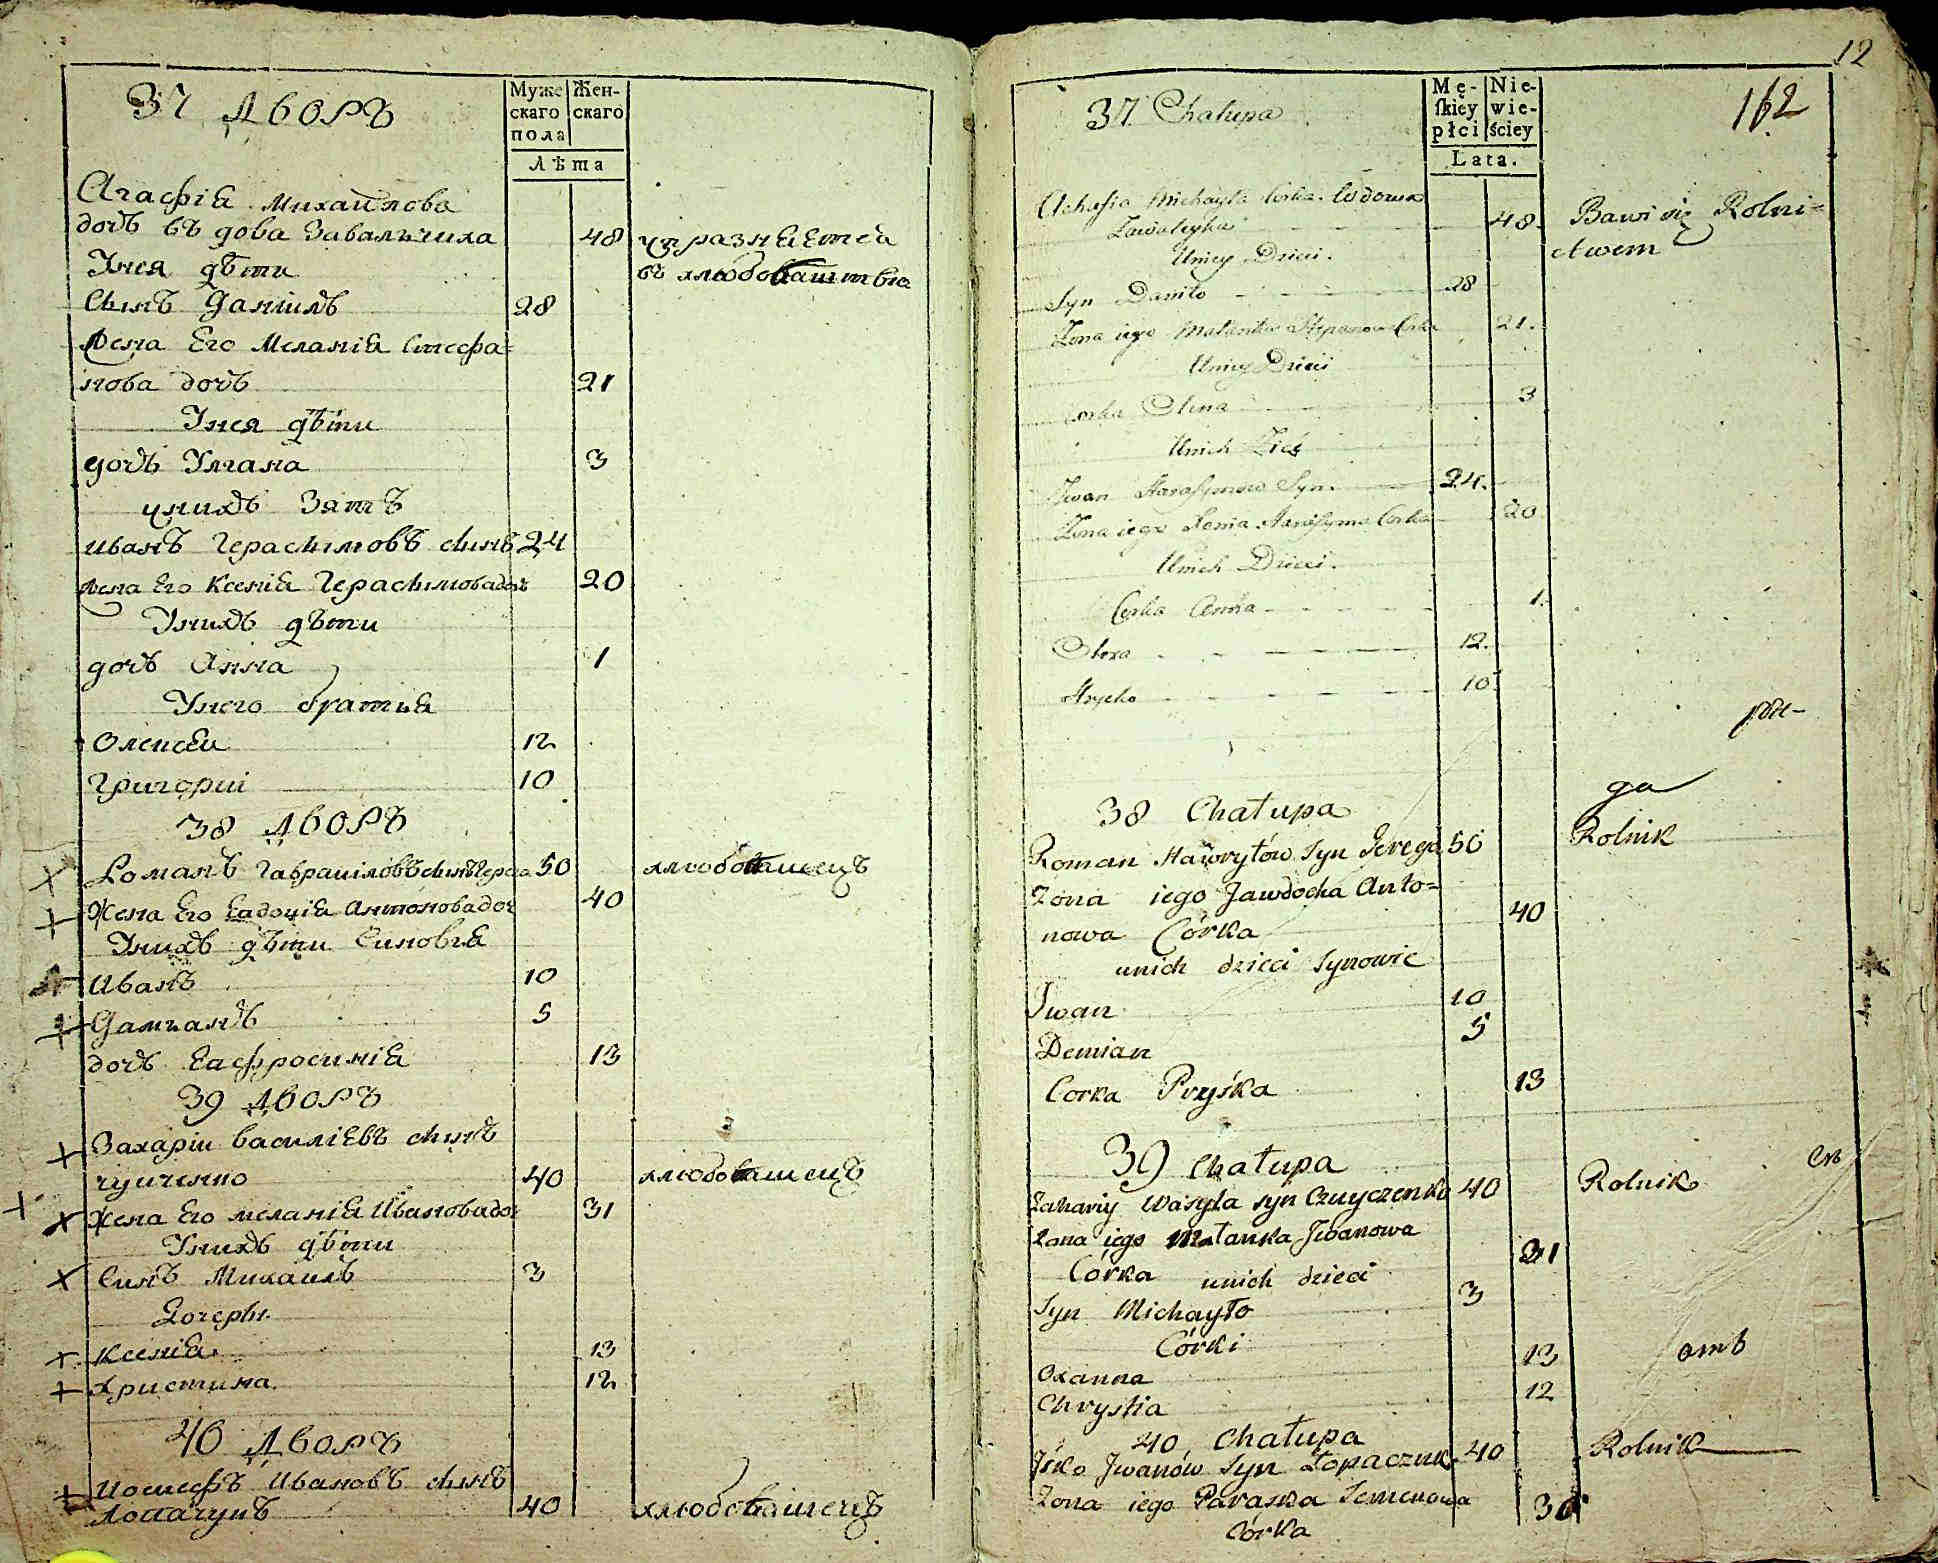 37 Дворъ
Муже
скаго
пола
Жен-
скаго
Лѣта
Агафіа Михаилова
дочъ въдова Завальчиха
48
упразняетса
Унея дѣти
въ хлюбопаштвю
Сынъ Даніилъ
28
Жена Его Меланіа Стефа=
нова дочъ
21
Унея дѣти
дочъ Улгана
3
унихъ Зятъ
Иванъ Герасимовъ сынъ
24
Жена Его Ксеніа Герасимова доч
20
Унихъ дѣти
дочъ Анна
1
Унего братиа
Олексеи
12
Григории
10
38 Дворъ
Романъ Гавриіловъ сынъ Герега
50
хлюбопашецъ
Жена Его Евдокіа Антонова доч
40
Унихъ дѣти Синовиа
Иванъ
10
Дамианъ
5
дочъ Евфросиніа
13
39 Дворъ
Захарии Василіевъ сынъ
чуиченко
40
хлюбопашецъ
Жена Его меланіа Ивановадоч
31
Унихъ дѣти
Синъ Михаилъ
3
Дочеры
Ксеніа
13
Христина
12
40 Дворъ
Иосифъ Ивановъ сынъ
Лопачукъ
40
хлюбопашецъ
12
162
37 Chałupa
Mę-
ſkiey
płci
Nie-
wie-
ściey
Lata.
Ahafia Michayła Corka Wdowa
Zawalczyha
48
Bawi się Rolni=
ctwem
Uniey Dzieci.
Syn Daniło
28
Zona iego Małanka Stepanowa Corka
21.
Uniey Dzieci
corka Olena
3
Unich Zięć
Iwan Harasymow Syn.
24.
Zona iego Xenia Harasyma Corka
20
Unich Dzieci.
Corka Anna
1.
Olexa
12.
Hryćko
10
38 Chałupa
Roman Hawryłów Syn Gerega
50
Rolnik
Zona iego Jawdocha Anto=
nowa Córka
40
unich dzieci Synowie
Iwan
10
Demian
5
Corka Pryśka
13
39 Chałupa
Zachariy Wasyla syn Czuyczenko
40
Rolnik
Zona iego Małanka Jwanowa
Córka
31
unich dzieci
Syn Michayło
3
Córki
Oxanna
13
отъ
Chrystia
12
40 Chałupa
Jśko Jwanów Syn Łopaczuk
40
Rolnik
Zona iego Paraska Semenowa
30
Córka